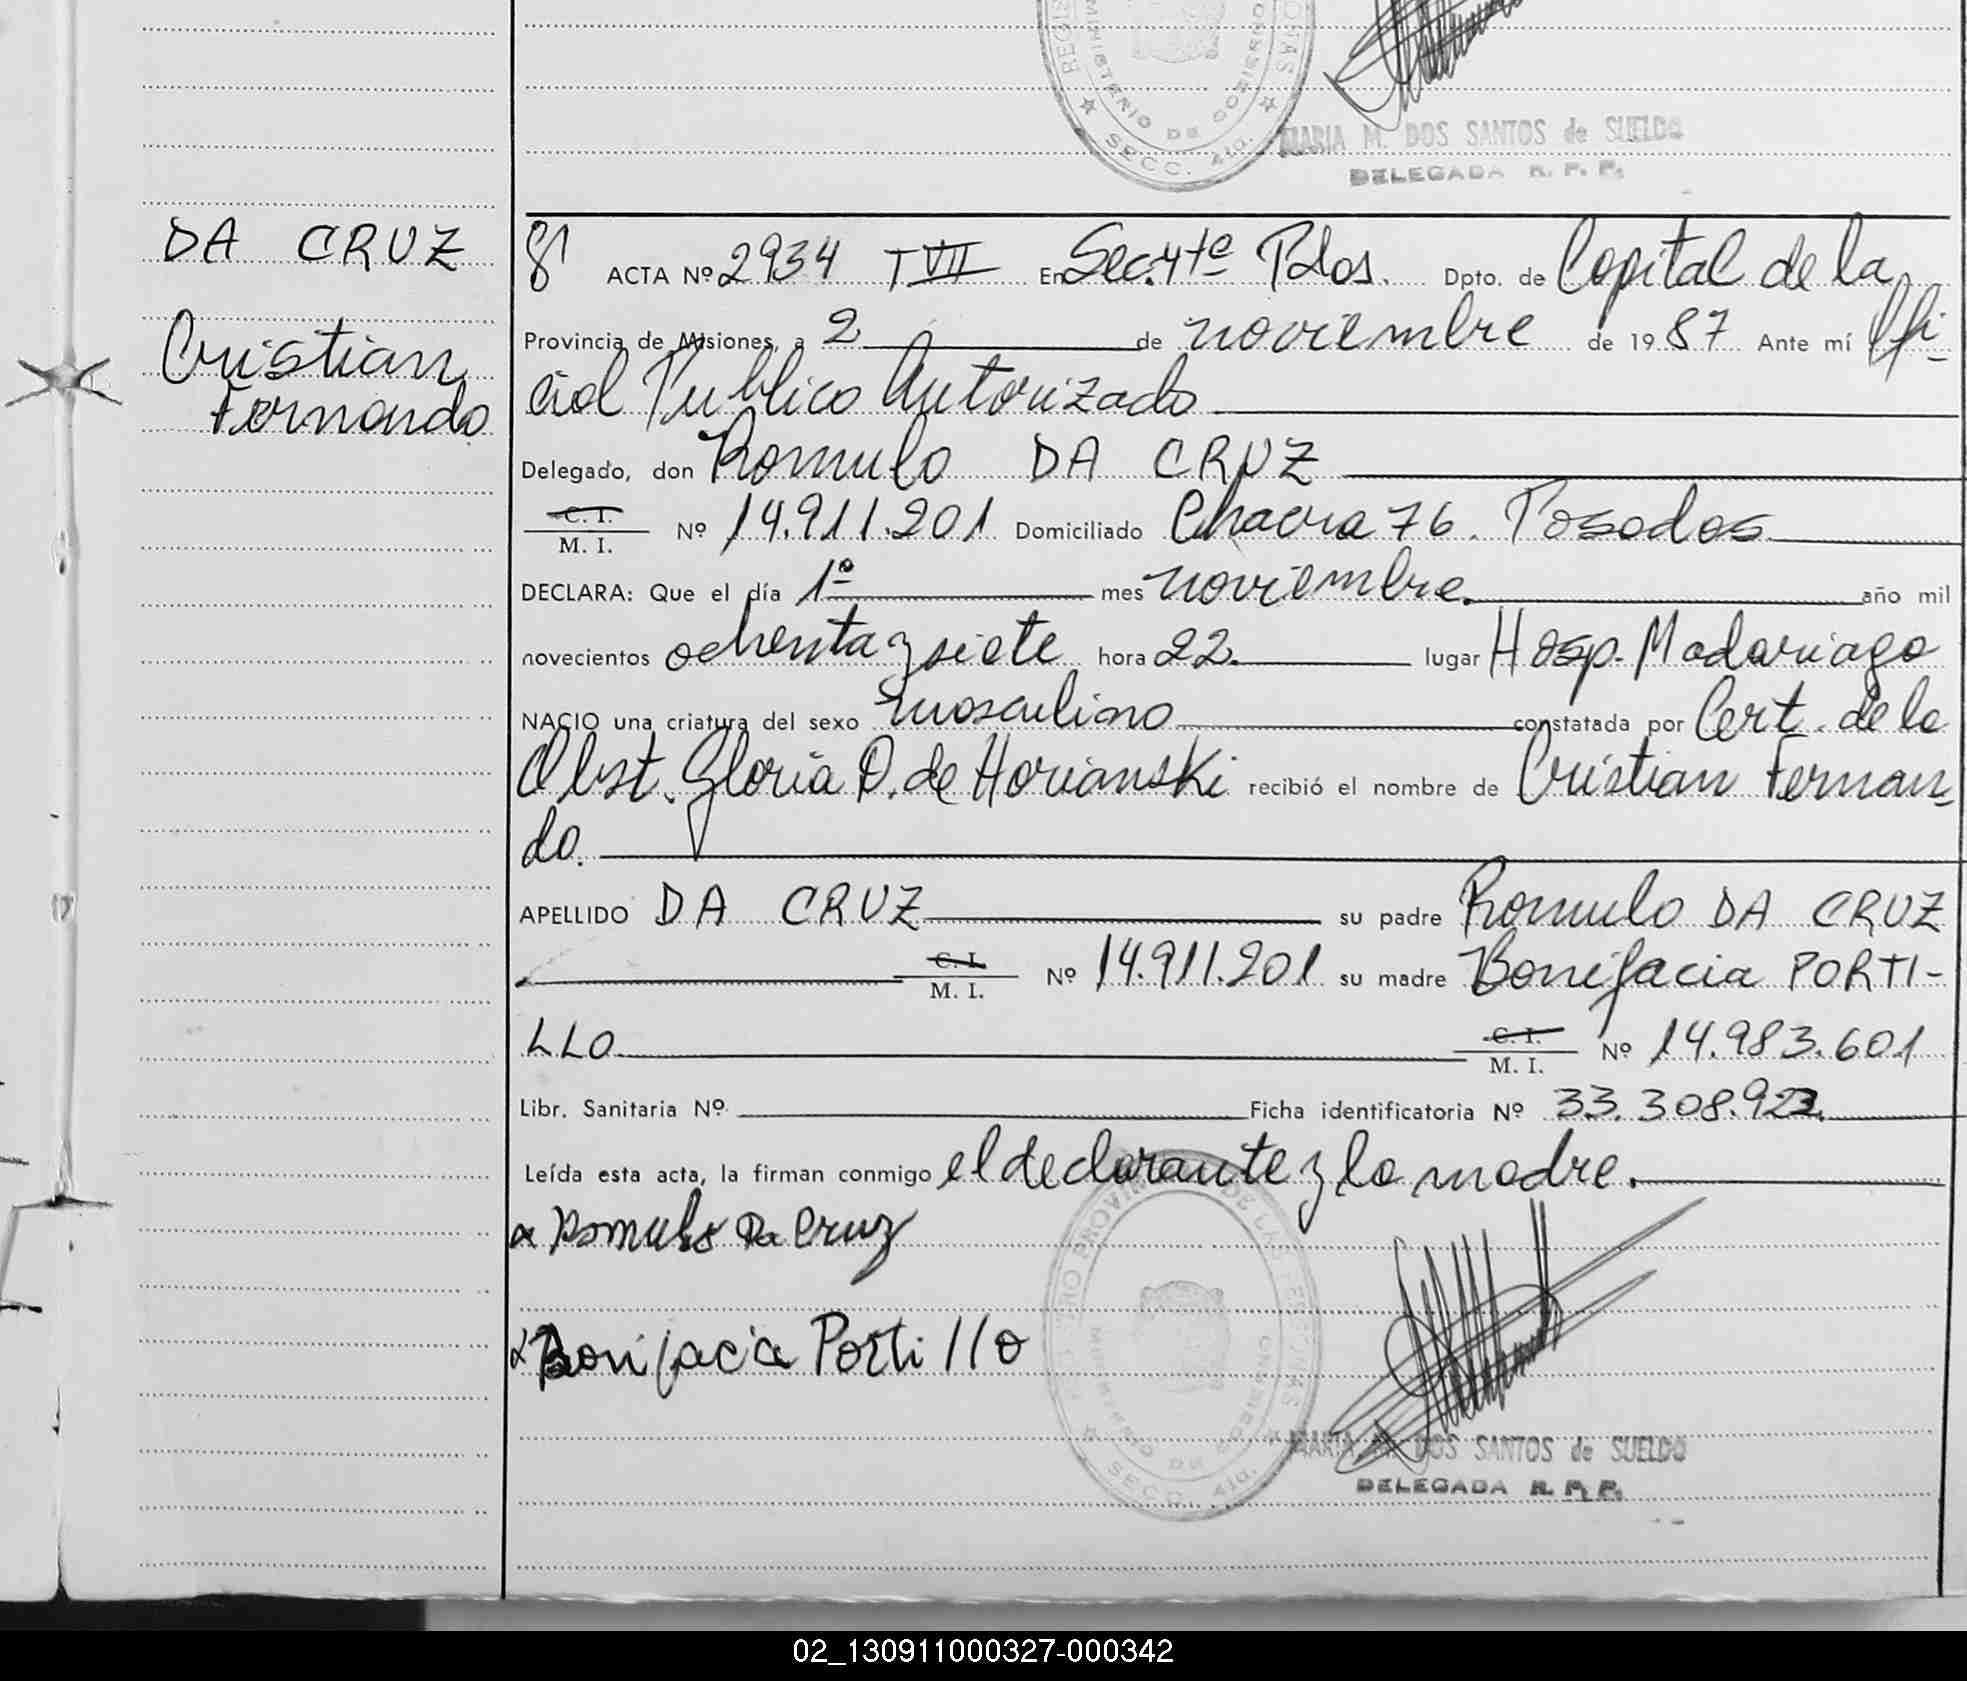 REGIS
MINISTERIO DE GOBIERNO
ONAS
★ SECC. 4ta. ★
MARIA M. DOS SANTOS de SUELDO
DELEGADA R. P. P.
DA CRUZ
Cristian
Fernando
ACTA Nº 2934 T VII En Sec. 4ta Pdos. Dpto. de Capital de la
Provincia de Misiones, a 2 de noviembre de 1987 Ante mí Ofi-
cial Publico Autorizado
Delegado, don Romulo DA CRUZ
C. I.
M. I. Nº 14.911.201 Domiciliado Chacra 76. Posadas
DECLARA: Que el día 1º mes noviembre. año mil
novecientos ochenta y siete hora 22. lugar Hosp. Madariaga
NACIO una criatura del sexo masculino constatada por Cert. de la
Obst. Gloria D. de Horianski recibió el nombre de Cristian Fernan-
do.
APELLIDO DA CRUZ su padre Romulo DA CRUZ
C. I.
M. I. Nº 14.911.201 su madre Bonifacia PORTI-
LLO C. I.
M. I. Nº 14.983.601
Libr. Sanitaria Nº Ficha identificatoria Nº 33.308.923.
Leída esta acta, la firman conmigo el declarante y la madre.
x Romulo Da Cruz
x Bonifacia Portillo
REGISTRO PROVINCIAL DE LAS PERSONAS
MINISTERIO DE GOBIERNO
★ SECC. 4ta. ★
MARIA M. DOS SANTOS de SUELDO
DELEGADA R. P. P.
02_130911000327-000342